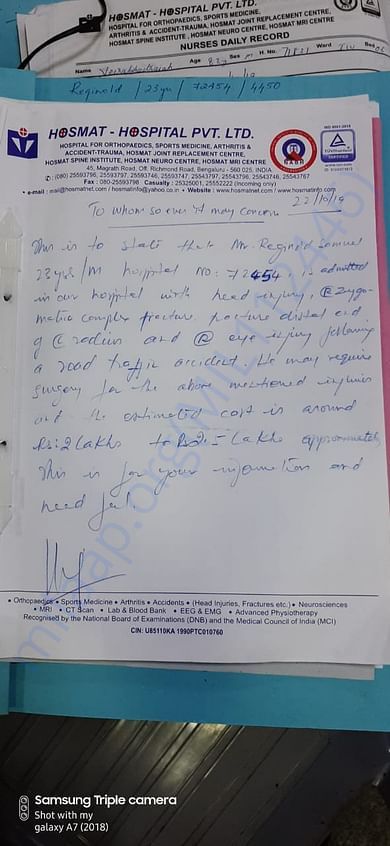 HOSMAT - HOSPITAL PVT. LTD.
HOSPITAL FOR ORTHOPAEDICS, SPORTS MEDICINE,
ARTHRITIS & ACCIDENT-TRAUMA, HOSMAT JOINT REPLACEMENT CENTRE,
HOSMAT SPINE INSTITUTE, HOSMAT NEURO CENTRE, HOSMAT MRI CENTRE
NURSES DAILY RECORD
Name Age Sex H. No. Ward Bed
Reginold / 23yr / 72454 / 4450
HOSMAT - HOSPITAL PVT. LTD.
HOSPITAL FOR ORTHOPAEDICS, SPORTS MEDICINE, ARTHRITIS &
ACCIDENT-TRAUMA, HOSMAT JOINT REPLACEMENT CENTRE,
HOSMAT SPINE INSTITUTE, HOSMAT NEURO CENTRE, HOSMAT MRI CENTRE
45, Magrath Road, Off. Richmond Road, Bengaluru - 560 025, INDIA
Fax : 080-25593798 Casualty : 25325001, 25552222 (Incoming only)
• e-mail : mail@hosmatnet.com / hosmat@yahoo.co.in • Website : www.hosmatnet.com / www.hosmatinfo.com
NABH
ISO 9001:2015
TÜV
CERTIFIED
22/10/19
To whom so ever it may concern
This is to state that Mr. Reginold Samuel
23yrs/M hospital No: 72454, is admitted
in our hospital with head injury, (R) zygo-
matic complex fracture, fracture distal end
of radius and (R) eye injury following
a road traffic accident. He may require
surgery for the above mentioned injuries
and the estimated cost is around
Rs: 2 lakhs to Rs 2.5 lakhs approximately
This is for your information and
need ful.
• Orthopaedics • Sports Medicine • Arthritis • Accidents • (Head Injuries, Fractures etc.) • Neurosciences
• MRI • CT Scan • Lab & Blood Bank • EEG & EMG • Advanced Physiotherapy
Recognised by the National Board of Examinations (DNB) and the Medical Council of India (MCI)
CIN: U85110KA 1990PTC010760
Samsung Triple camera
Shot with my
galaxy A7 (2018)